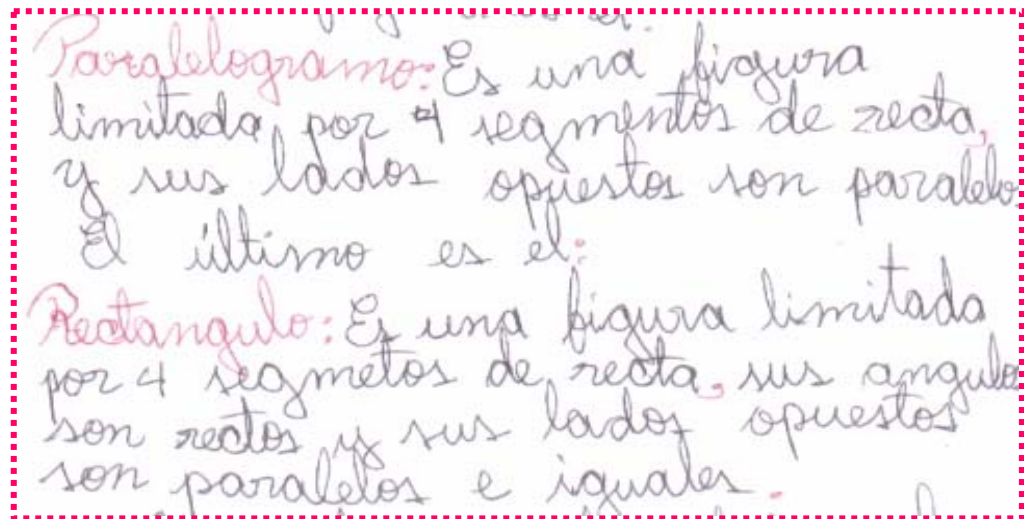 Paralelogramo: Es una figura
limitada por 4 segmentos de recta,
y sus lados opuestos son paralelo
El último es el:
Rectangulo: Es una figura limitada
por 4 segmetos de recta, sus angulos
son rectos y sus lados opuestos
son paralelos e iguales.